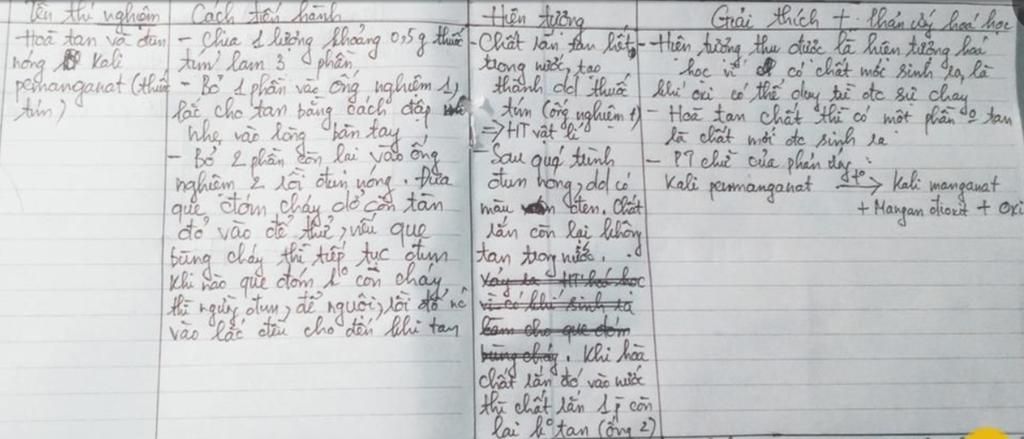 Tên thí nghiệm
Hoà tan và đun
nóng Kali
pemanganat (thuốc
tím)
Cách tiến hành
- Chia 1 lượng khoảng 0,5g thuốc
tím làm 3 phần
- Bỏ 1 phần vào ống nghiệm 1,
lắc cho tan bằng cách đập
nhẹ vào lòng bàn tay
- Bỏ 2 phần còn lại vào ống
nghiệm 2 rồi đun nóng. Đưa
que đóm cháy dở còn tàn
đỏ vào để thử, nếu que
bùng cháy thì tiếp tục đun
Khi nào que đóm k° còn cháy
thì ngừng đun, để nguội, rồi đổ nc
vào lắc đều cho đến khi tan
Hiện tượng
- Chất rắn tan hết
trong nước, tạo
thành dd thuốc
tím (ống nghiệm 1)
=> HT vật lí
- Sau quá trình
đun nóng, dd có
màu đen. Chất
rắn còn lại không
tan trong nước.
Vậy là HT hoá học
vì có khí sinh ra
làm cho que đóm
bùng cháy. Khi hoà
chất rắn đó vào nước
thì chất rắn 1 p còn
lại k° tan (ống 2)
Giải thích + Phản ứng hoá học
- Hiện tượng thu được là hiện tượng hoá
học vì có chất mới sinh ra, là
khí oxi có thể duy trì đc sự cháy
- Hoà tan chất thì có một phần o tan
là chất mới đc sinh ra
- PT chữ của phản ứng :
Kali permanganat t° → Kali manganat
+ Mangan đioxit + Oxi